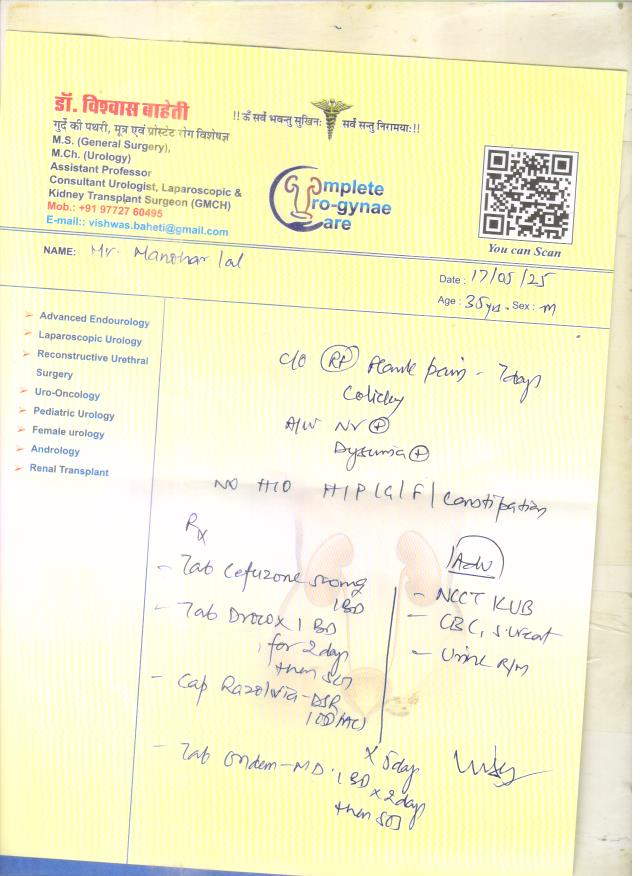 डॉ. विश्वास बाहेती
गुर्दे की पथरी, मूत्र एवं प्रोस्टेट रोग विशेषज्ञ
M.S. (General Surgery),
M.Ch. (Urology)
Assistant Professor
Consultant Urologist, Laparoscopic &
Kidney Transplant Surgeon (GMCH)
Mob.: +91 97727 60495
E-mail:: vishwas.baheti@gmail.com
!! ॐ सर्वे भवन्तु सुखिनः सर्वे सन्तु निरामयाः!!
Complete
Uro-gynae
Care
You can Scan
NAME: Mr. Manohar lal
Date : 17/05/25
Age : 35yrs. Sex : m
Advanced Endourology
Laparoscopic Urology
Reconstructive Urethral
Surgery
Uro-Oncology
Pediatric Urology
Female urology
Andrology
Renal Transplant
C/O Flank pain - 7days
Colicky
A/W NV +
Dysuria +
NO H/O H/P/G/F/Constipation
Rx
- Tab 500mg
1 BD
- Tab 1 BD
for 2 days
then SOS
- Cap -DSR
1 OD (AC)
x 5 days
- Tab Ondem-MD 1 BD x 2 days
then SOS
Adv
- NCCT KUB
- CBC, S.creat
- Urine R/M